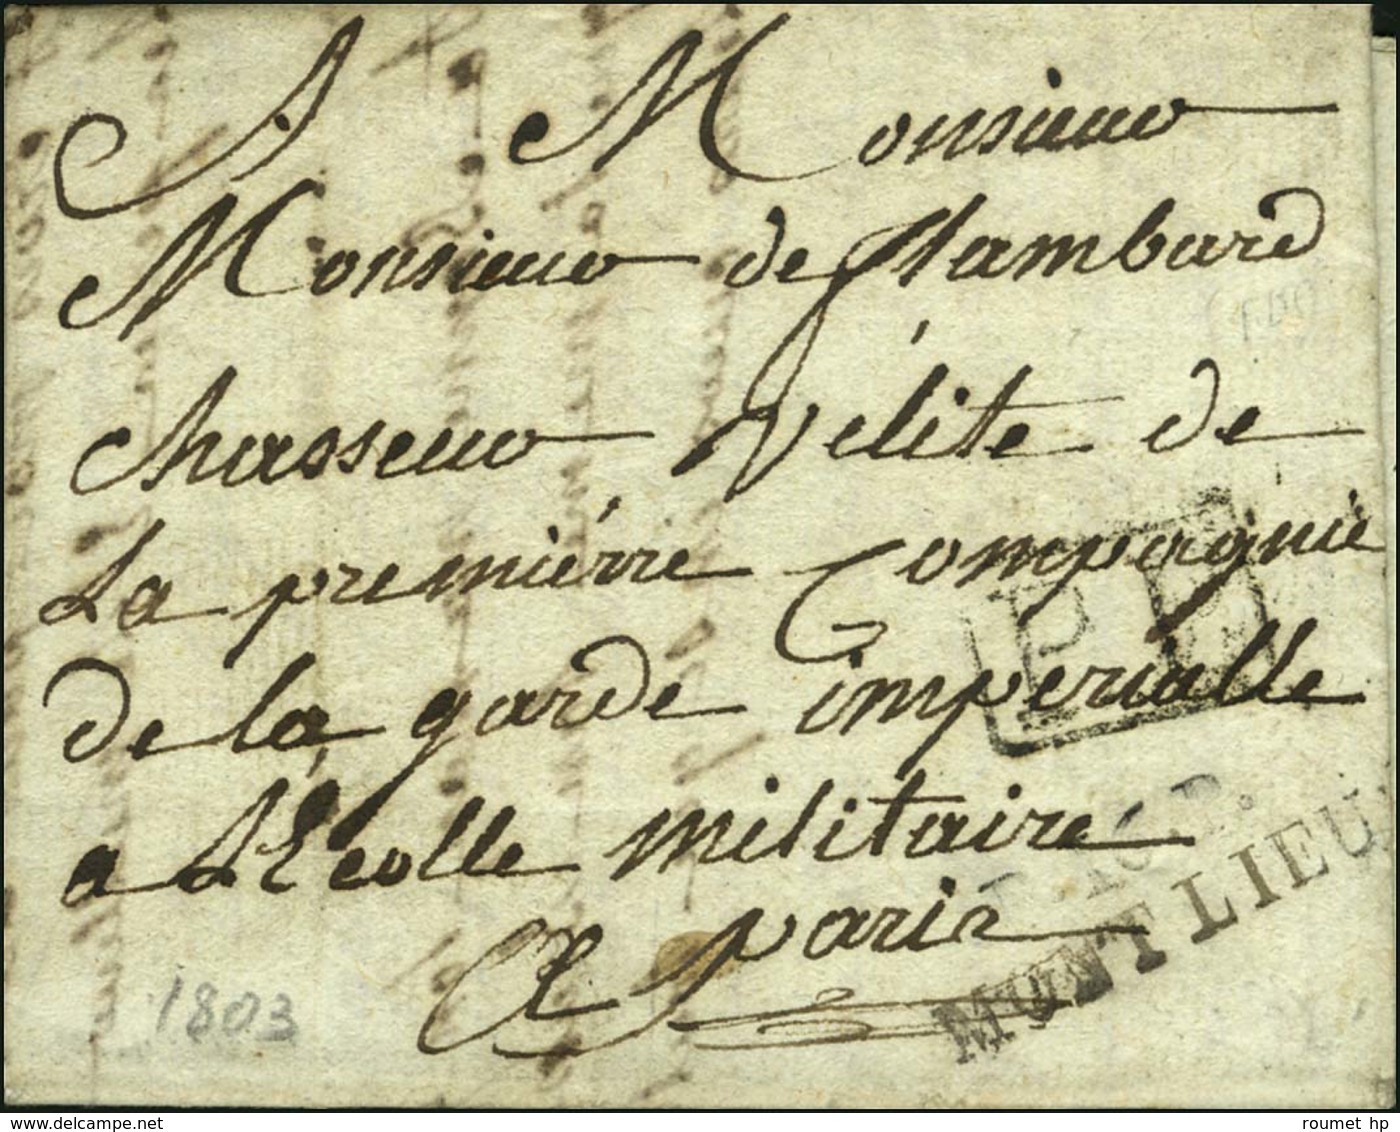 A Monsieur
Monsieur de flambard
chasseur vélite de
La premiérre Compagnie
de la garde imperialle
a L'Ecolle militaire
A paris
P.P.
P.16.P.
MONTLIEU
1803
www.delcampe.net
roumet hp